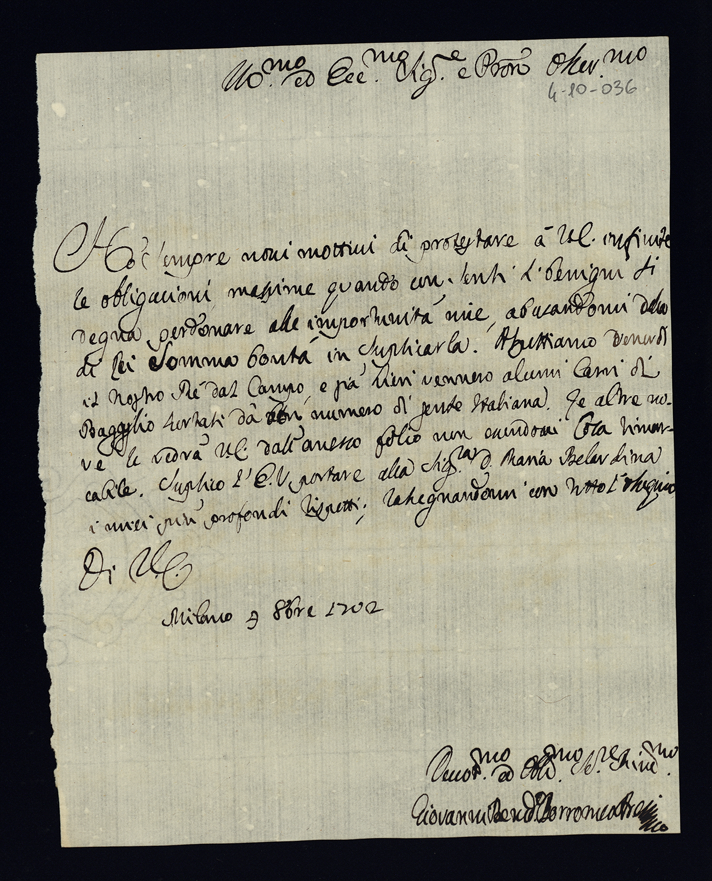 Ill.mo ed Ecc.mo Sig.re e Pron Osser.mo
4-10-036
Ho sempre novi mottivi di protestare à V.E. infinite
le obligazioni, massime quando con senti sì benigni si
degna perdonare alle importunità mie, abusandomi della
di lei somma bontà in suplicarla. Aspettiamo Venerdì
il Nostro Rè dal Campo, e già hieri vennero alcuni Carri di
Bagaglio scortati da numero di gente Italiana. Le altre no-
ve le vedrà V.E. dall'anesso folio non essendovi cosa rimar-
cabile. Suplico l'E.V. portare alla Sig.ra D. Maria Belardina
i miei più profondi rispetti; rasegnandomi con tutto l'ossequio
Di V.E.
Milano 9 8bre 1702
Devot.mo ed Obl.mo Se.re
Giovanni Bened. Borromeo